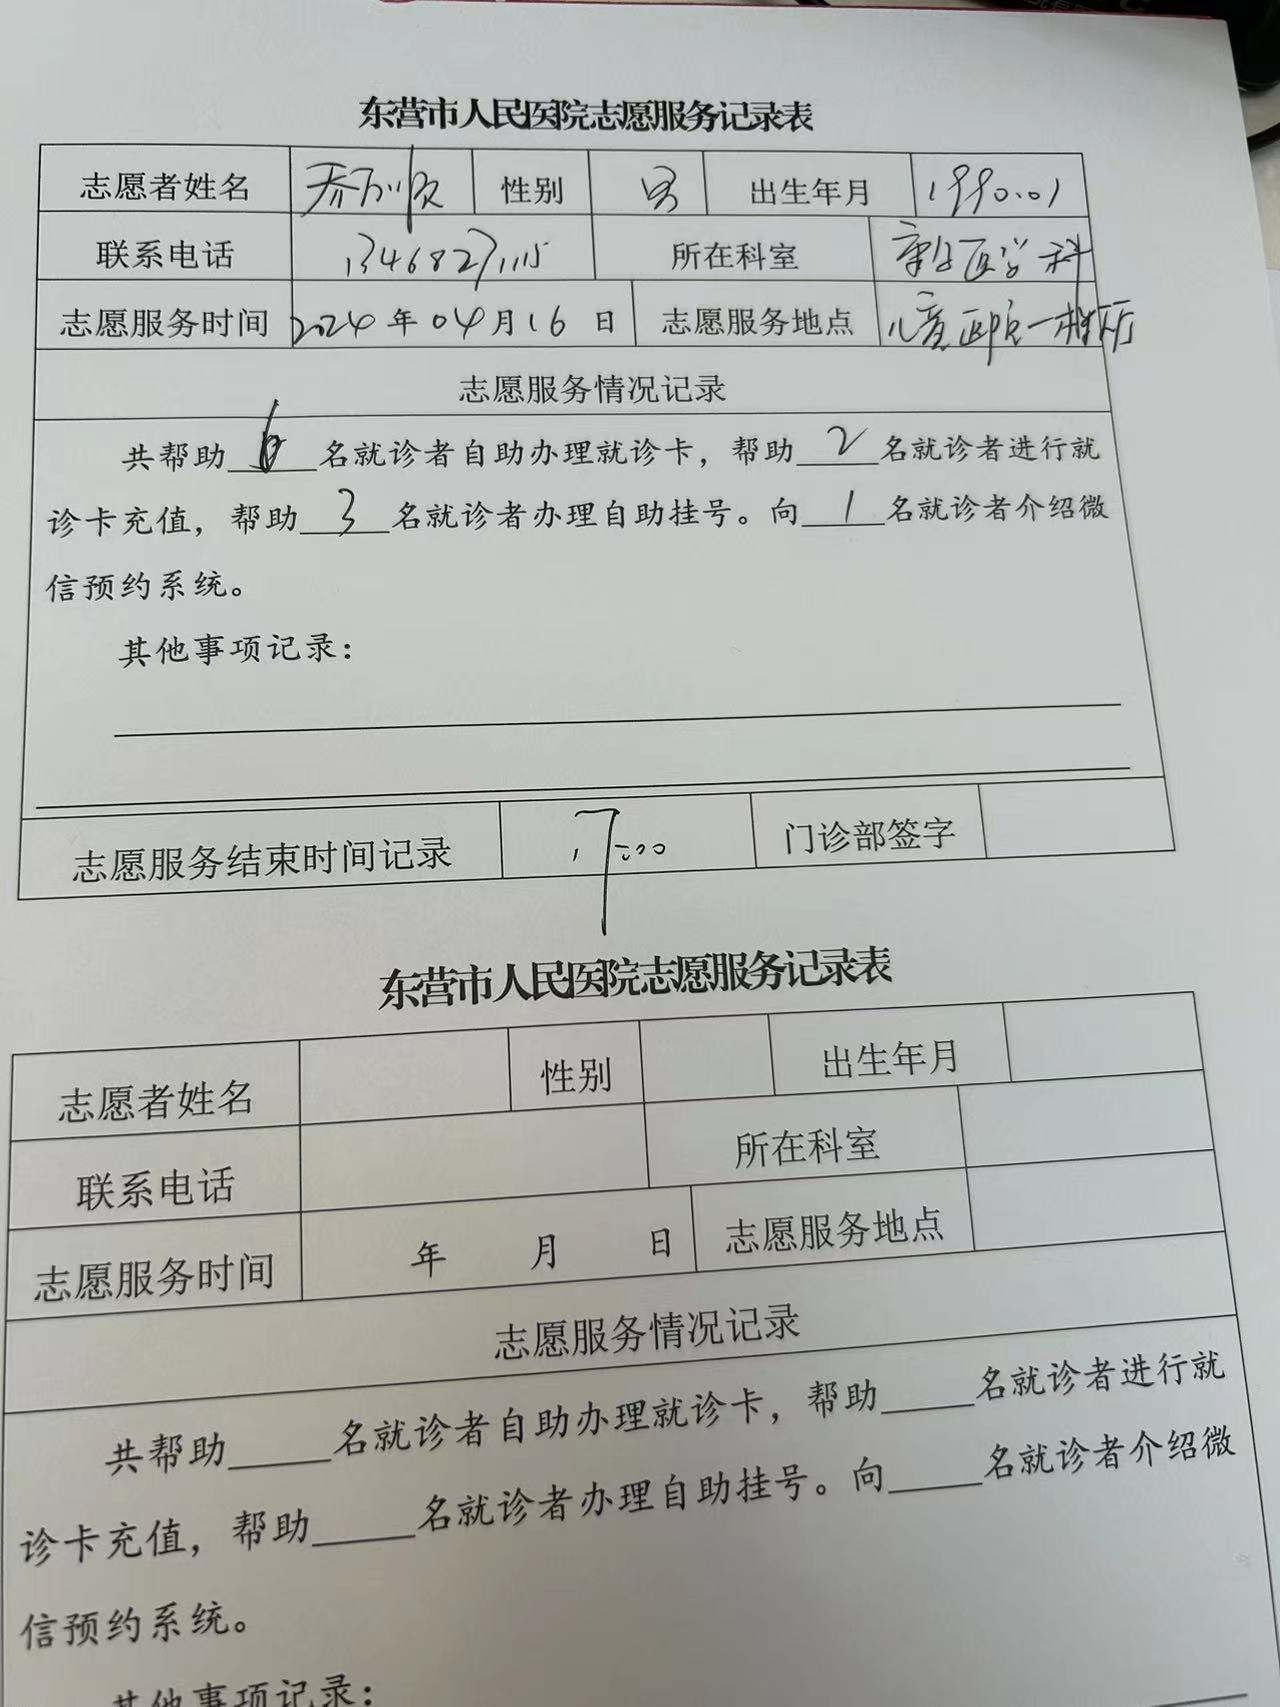 东营市人民医院志愿服务记录表
志愿者姓名 乔万顺 性别 男 出生年月 1990.01
联系电话 13468271115 所在科室 医学科
志愿服务时间 2024年04月16日 志愿服务地点 儿童 一楼
志愿服务情况记录
共帮助6名就诊者自助办理就诊卡，帮助2名就诊者进行就
诊卡充值，帮助3名就诊者办理自助挂号。向1名就诊者介绍微
信预约系统。
其他事项记录：
志愿服务结束时间记录 17:00 门诊部签字
东营市人民医院志愿服务记录表
志愿者姓名 性别 出生年月
联系电话 所在科室
志愿服务时间 年 月 日 志愿服务地点
志愿服务情况记录
共帮助____名就诊者自助办理就诊卡，帮助____名就诊者进行就
诊卡充值，帮助____名就诊者办理自助挂号。向____名就诊者介绍微
信预约系统。
其他事项记录：